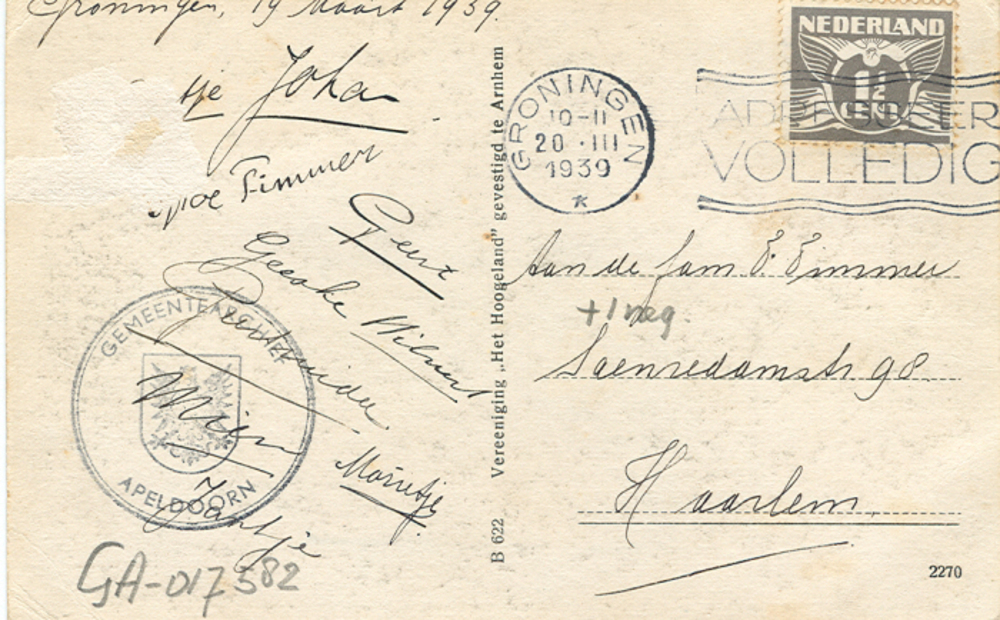 Groningen, 19 Maart 1939.
tje Johan
Timmer
Geert
Geeske Wilmert
Mien
Marietje
Jantje
GEMEENTEARCHIEF
APELDOORN
GA-017582
B 622 Vereeniging „Het Hoogeland” gevestigd te Arnhem
GRONINGEN
10-11
20 · III
1939
K
NEDERLAND
1½
CENT
ADRESSEER
VOLLEDIG
Aan de fam E. Timmer
+1 neg.
Saenredamstr 98.
Haarlem.
2270